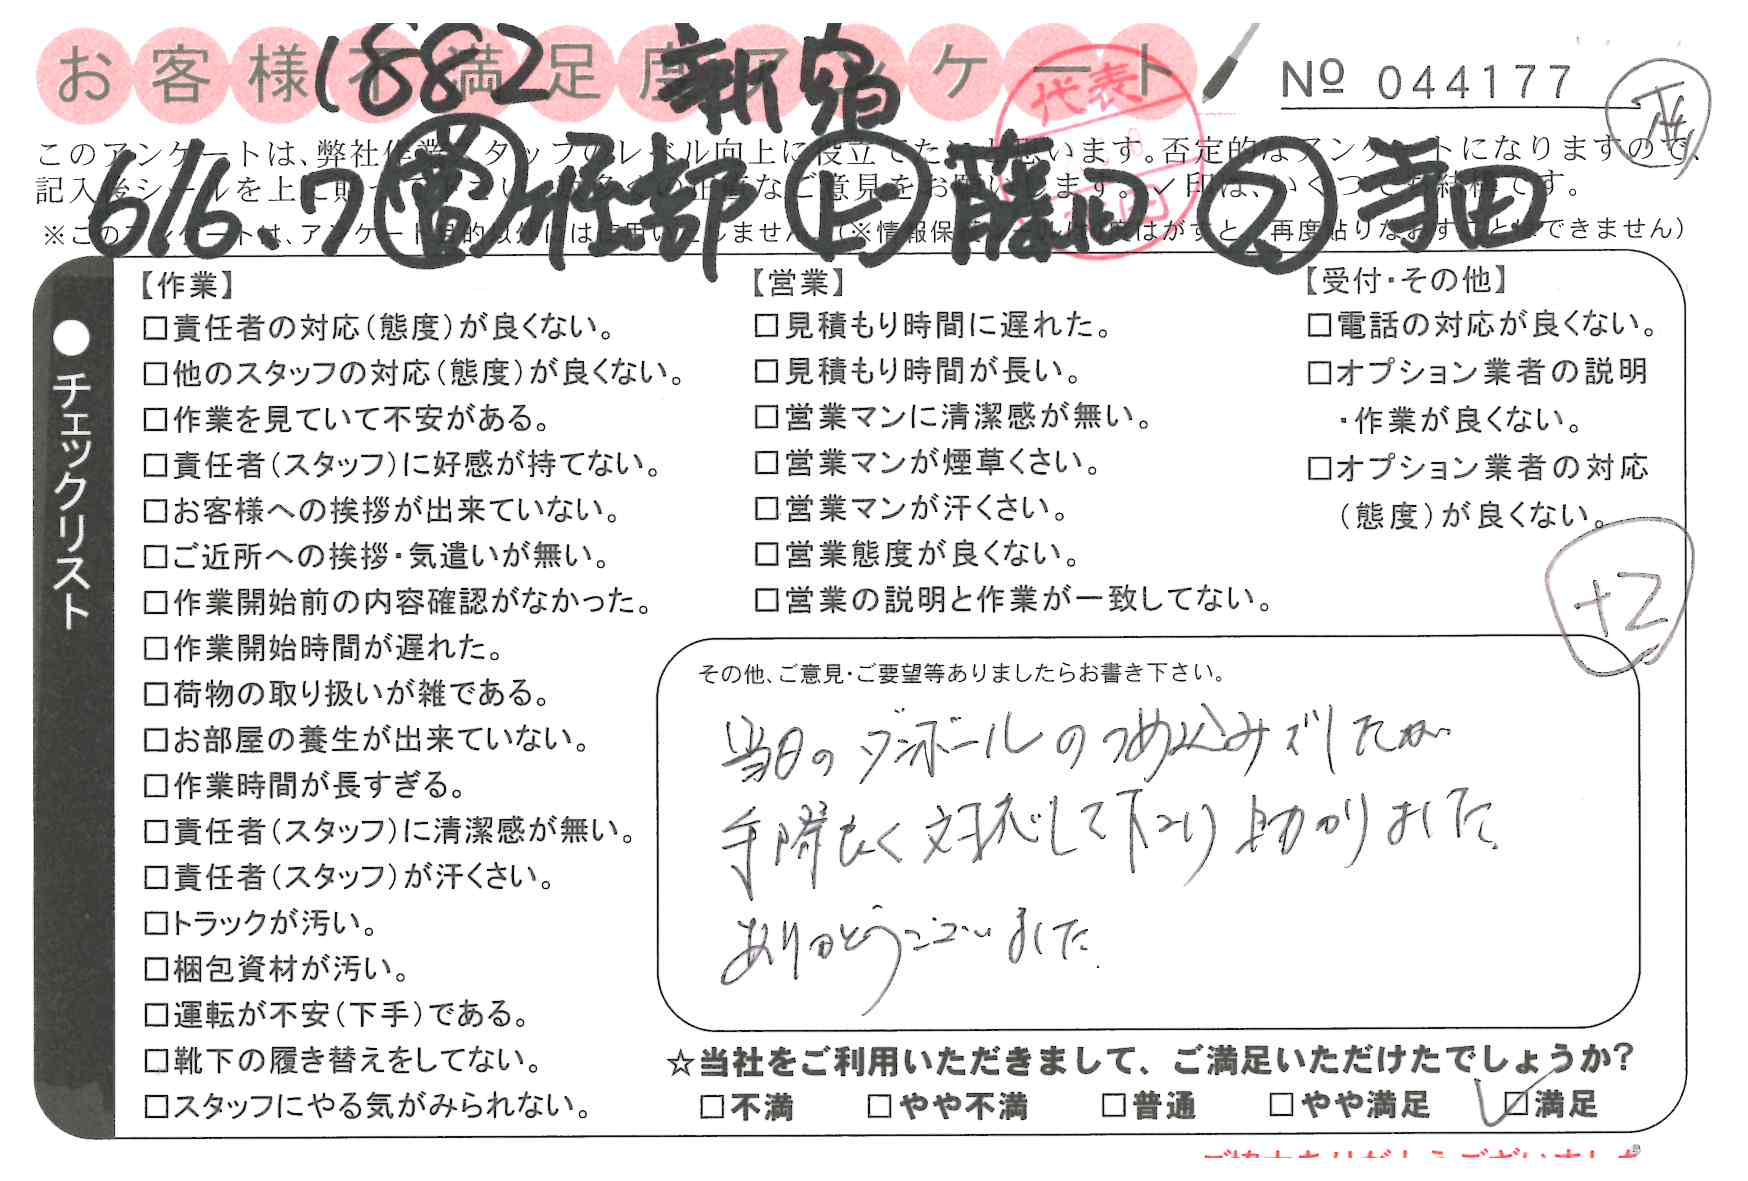 お客様不満足度アンケート
1882 新宿
Nº 044177
このアンケートは、弊社作業スタッフのレベル向上に役立てたいと思います。否定的なアンケートになりますので、
記入後シールを上に貼って
正直なご意見をお願いします。✓印は、いくつでも結構です。
※このアンケートは、アンケート目的以外には使用いたしません。(※情報保護シールは1度はがすと、再度貼りなおすことはできません)
6/6.7 営 軽部 上 藤沢 ス 寺田
代表
●チェックリスト
【作業】
□責任者の対応(態度)が良くない。
□他のスタッフの対応(態度)が良くない。
□作業を見ていて不安がある。
□責任者(スタッフ)に好感が持てない。
□お客様への挨拶が出来ていない。
□ご近所への挨拶・気遣いが無い。
□作業開始前の内容確認がなかった。
□作業開始時間が遅れた。
□荷物の取り扱いが雑である。
□お部屋の養生が出来ていない。
□作業時間が長すぎる。
□責任者(スタッフ)に清潔感が無い。
□責任者(スタッフ)が汗くさい。
□トラックが汚い。
□梱包資材が汚い。
□運転が不安(下手)である。
□靴下の履き替えをしてない。
□スタッフにやる気がみられない。
【営業】
□見積もり時間に遅れた。
□見積もり時間が長い。
□営業マンに清潔感が無い。
□営業マンが煙草くさい。
□営業マンが汗くさい。
□営業態度が良くない。
□営業の説明と作業が一致してない。
【受付・その他】
□電話の対応が良くない。
□オプション業者の説明
・作業が良くない。
□オプション業者の対応
(態度)が良くない。
+2
その他、ご意見・ご要望等ありましたらお書き下さい。
当日のダンボールのつめ込みでしたが
手際良く対応して下さり助かりました。
ありがとうございました.
☆当社をご利用いただきまして、ご満足いただけたでしょうか?
□不満 □やや不満 □普通 □やや満足 ☑満足
ご協力ありがとうございました